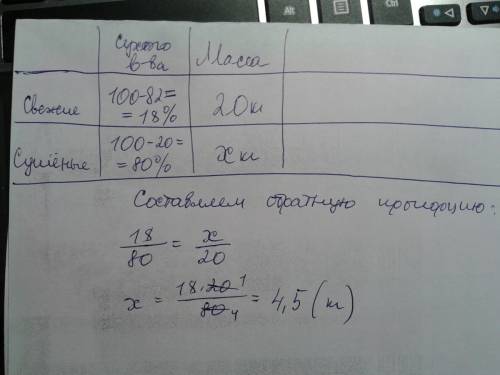 Alt
Ctrl
Сухого
в-ва
Масса
Свежие
100-82=
= 18%
20 кг
Сушёные
100-20=
= 80%
x кг
Составляем обратную пропорцию:
18/80 = x/20
x = 18·20 1/80 4 = 4,5 (кг)